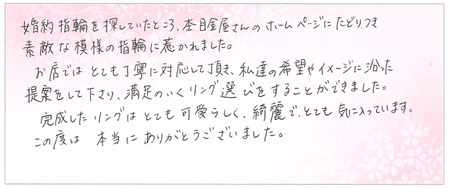 婚約指輪を探していたところ、杢目金屋さんのホームページにたどりつき
素敵な模様の指輪に惹かれました。
お店ではとても丁寧に対応して頂き、私達の希望やイメージに沿った
提案をして下さり、満足のいくリング選びをすることができました。
完成したリングはとても可愛らしく、綺麗で、とても気に入っています。
この度は 本当にありがとうございました。